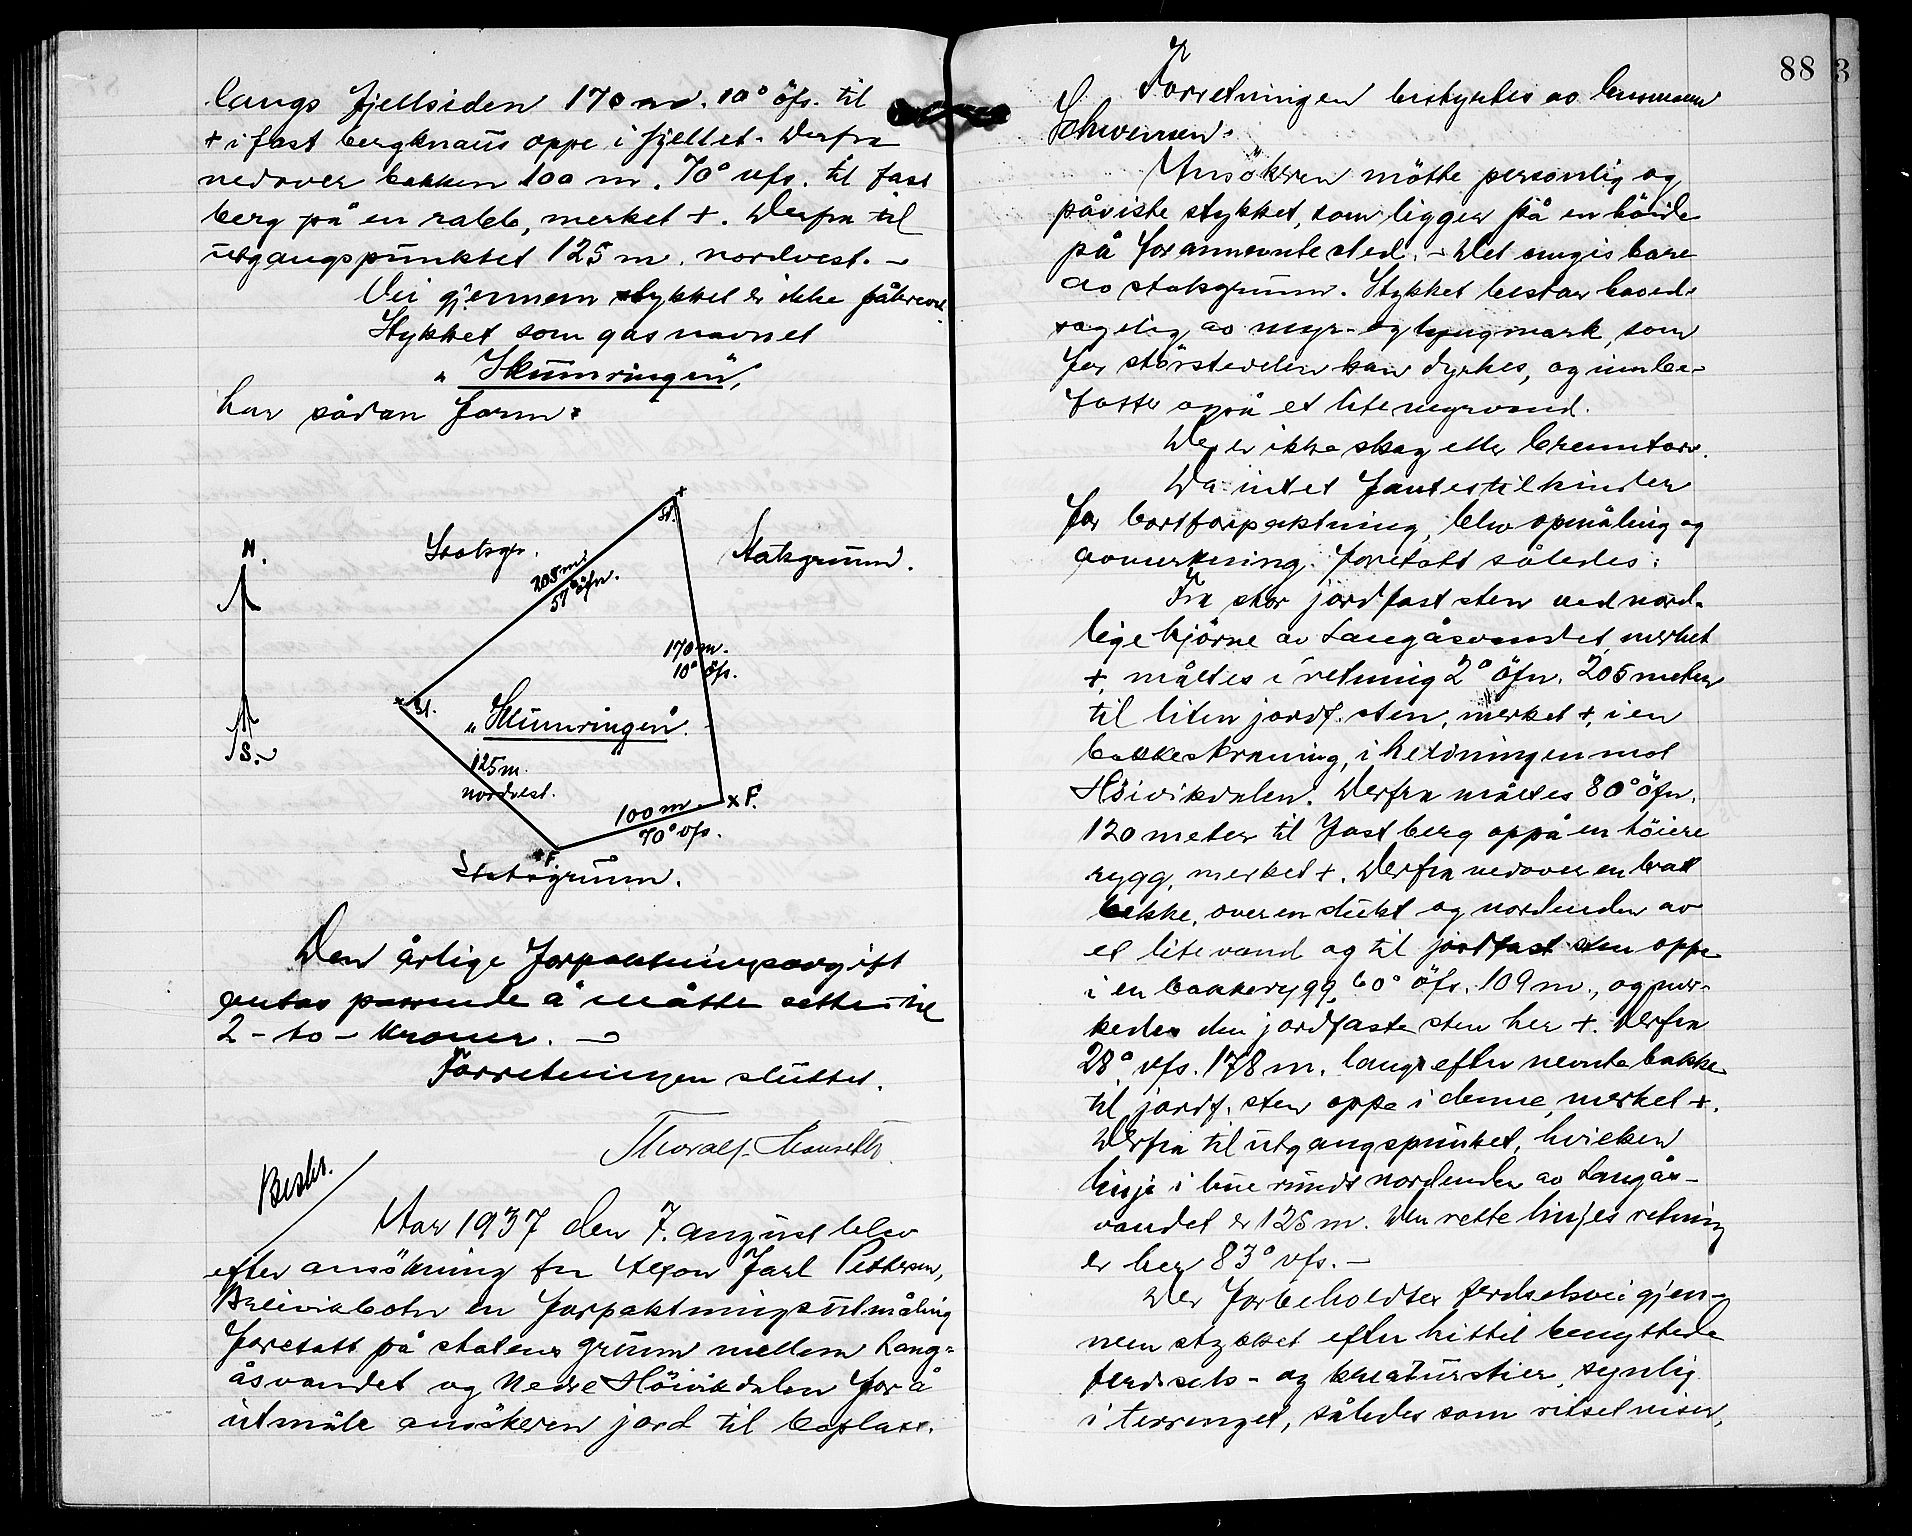 langs fjellsiden 170 m. 10° öfs. til
+ i fast bergknaus oppe i fjellet. Derfra
nedover bakken 100 m. 70° vfs. til fast
berg på en rabb, merket +. Derfra til
utgangspunktet 125 m. nordvest. –
Vei gjennem stykket er ikke påkrevet.
Stykket som gås navnet
"Skumringen",
har sådan form:
N.
S.
Statsgr.
Statsgrunn.
St.
208 m.
51° öfn.
170 m.
10° öfs.
St.
"Skumringen".
125 m.
nordvest.
100 m.
70° vfs.
x F.
F.
Statsgrunn.
Den årlige forpaktningsavgift
antas passende å måtte settes til
2 - to - kroner. –
Forretningen sluttet.
Thoralf
Beskr.
Aar 1937 den 7. august blev
efter ansökning fra Jarl Pettersen,
en forpaktningsutmåling
foretatt på statens grunn mellem Lang-
åsvandet og Nedre Höivikdalen for å
utmåle ansökeren jord til boplass.
88
3
Forretningen bestyrtes av
Schwensen.
Ansökeren mötte personlig og
påviste stykket, som ligger på en höide
på forannevnte sted. – Det omgis bare
av statsgrunn. Stykket består hoved-
sagelig av myr- og lyngmark, som
for störstedelen kan dyrkes, og innbe-
fatter også et lite myrvand.
Der er ikke skog eller brenntorv.
Da intet fantes til hinder
for bortforpaktning, blev opmåling og
avmerkning foretatt således:
Fra stor jordfast sten ved nord-
lige hjörne av Langåsvandet, merket
+, måltes i retning 2° öfn. 205 meter
til liten jordf. sten, merket +, i en
bakkeskraning, i heldningen mot
Höivikdalen. Derfra måltes 80° öfn.
120 meter til fast berg oppå en höiere
rygg, merket +. Derfra nedover en bratt
bakke, over en slukt og nordenden av
et lite vand og til jordfast sten oppe
i en bakkerygg, 60° öfs. 109 m., og mer-
kedes den jordfaste sten her +. Derfra
28° vfs. 178 m. langs efter nevnte bakke
til jordf. sten oppe i denne, merket +.
Derfra til utgangspunktet, hvilken
linje i bue rundt nordenden av Langås-
vandet er 125 m. Den rette linjes retning
er her 83° vfs. –
Der forbeholdtes ferdselsvei gjen-
nem stykket efter hittil benyttede
ferdsels- og kreaturstier, synlig
i terrenget, således som risset viser,